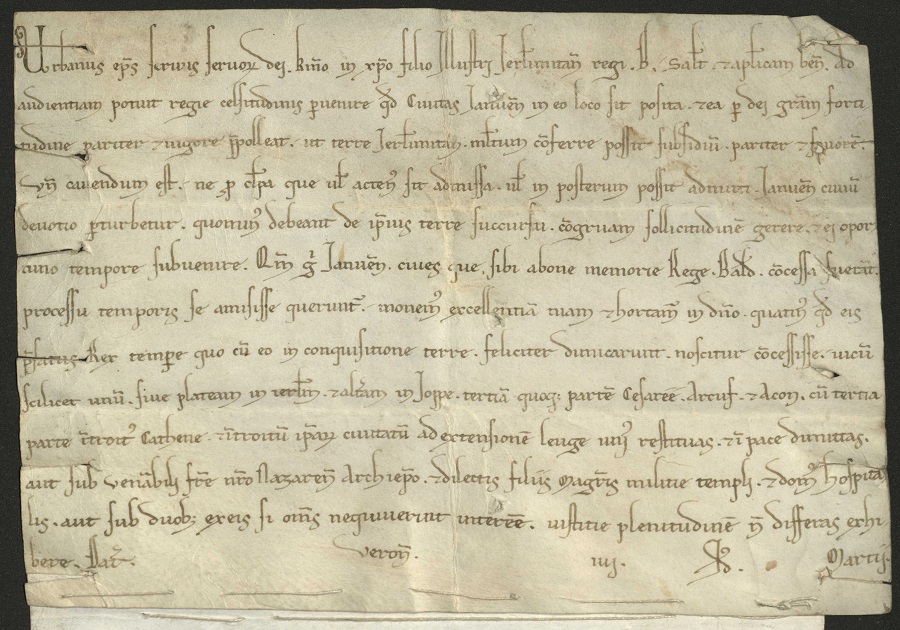 Urbanus ep̄s seruus seruoꝝ dei. kmo in xp̄o filio Illustri Ierl̄imitan̄ regi. B. Salt̄. ⁊ ap̄licam ben̄. Ad
audientiam potuit regie celsitudinis ꝑuenire qd̄ Ciuitas Ianuen̄ in eo loco sit posita. ⁊ ea ꝑ dei grām forti
tudine pariter ⁊ uigore p̄polleat. ut terre Ierl̄imitan̄. ml̄tum cōferre possit subsidiū. pariter ⁊ fauorē.
Vn̄ cauendum est. ne ꝓ cl̄pa que ul̄ acten᷒ sit admissa. ul̄ in posterum possit admitti. Ianuen̄ ciuiū
deuotio ꝑturbetur. quomin᷒ debeant de ip̄ius terre succursu. cōgruam sollicitudinē gerere. ⁊ ei opor
tuno tempore subuenire. Qm̄ gͥ Ianuen̄. ciues que sibi a bone memorie Rege. Bald̄. cōcessa fuerant.
processu temporis se amisisse querunt᷑. monem᷒ excellentiā tuam ⁊ hortam᷒ in dn̄o. quatin᷒ qd̄ eis
p̄fatus Rex tempore quo cū eo in conquisitione terre. feliciter dimicarunt. noscitur cōcessisse. uicū
scilicet unū. siue plateam in ierl̄m. ⁊ alt̄am in Ioppe. tertiā quoqꝫ partē Cesaree. Arsuf. ⁊ Acon. cū tertia
parte īt̄roit᷒ Cathene. ⁊ īt̄roitū ip̄aꝝ ciuitatū ad extensionē leuge uni᷒ restituas. ⁊ ī pace dimittas.
aut sub uen̄abili fr̄e nr̄o Nazaren̄ Archiep̄o. ⁊ dilectis filiis Magr̄is militie templi. ⁊ dom᷒ hospita
lis. aut sub duobꝫ ex eis si om̄s nequiuerint interēē. iustitie plenitudinē n̄ differas exhi
bere. Dat̄. Veron̄. iiij. Id̄. Martii.